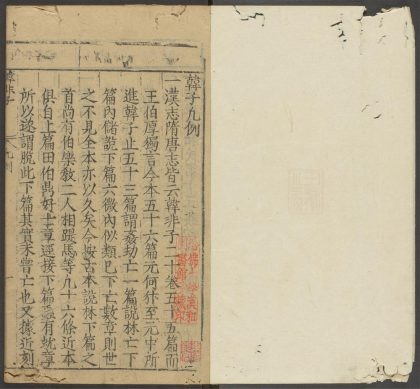 韓子凢例
一漢志隋唐志皆云韓非子二十卷五十五篇而
王伯厚獨言今本五十六篇元何犿至元中所
進韓子止五十三篇謂姦劫亡一篇說林亡下
篇內儲說下篇六微內似類已下亡數章則世
之不見全本亦以久矣今按古本說林下篇之
首尚有伯樂敎二人相踶馬等凢十六條近本
俱自上篇田伯鼎好士章逕接下篇蟲有蚘章
所以遂謂脫此下篇其實未嘗亡也又據近刻
韓非子 凢例 一